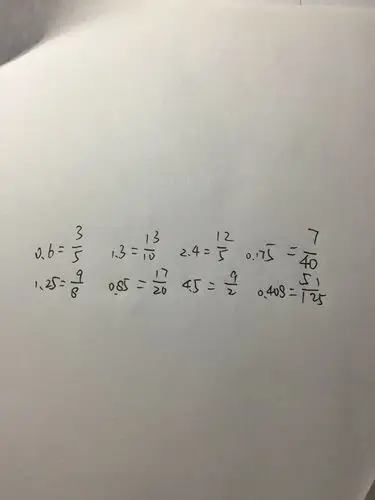 0.6 = 3/5 1.3 = 13/10 2.4 = 12/5 0.175 = 7/40
1.25 = 9/8 0.85 = 17/20 4.5 = 9/2 0.408 = 51/125